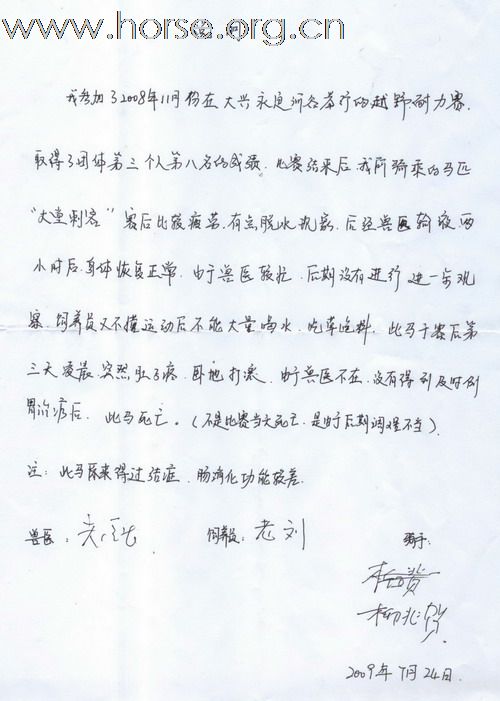 www.horse.org.cn
我参加了2008年11月份在大兴永定河名举行的越野耐力赛,
取得了团体第三个人第八名的成绩。比赛结束后,我所骑乘的马匹
"大堂刺客"赛后比较疲劳,有点脱水现象,后经兽医输液,两
小时后,身体恢复正常,由于兽医较忙,后期没有进行进一步观
察,饲养员又不懂运动后不能大量喝水,吃草吃料,此马于赛后第
三天凌晨,突然肚子疼,卧地打滚,由于兽医不在,没有得到及时倒
胃治疗后,此马死亡。(不是比赛当天死亡,是由于后期调理不当)
注:此马原来得过结症,肠消化功能较差
兽医: 饲养员:老刘 骑手:
2009年7月24日.